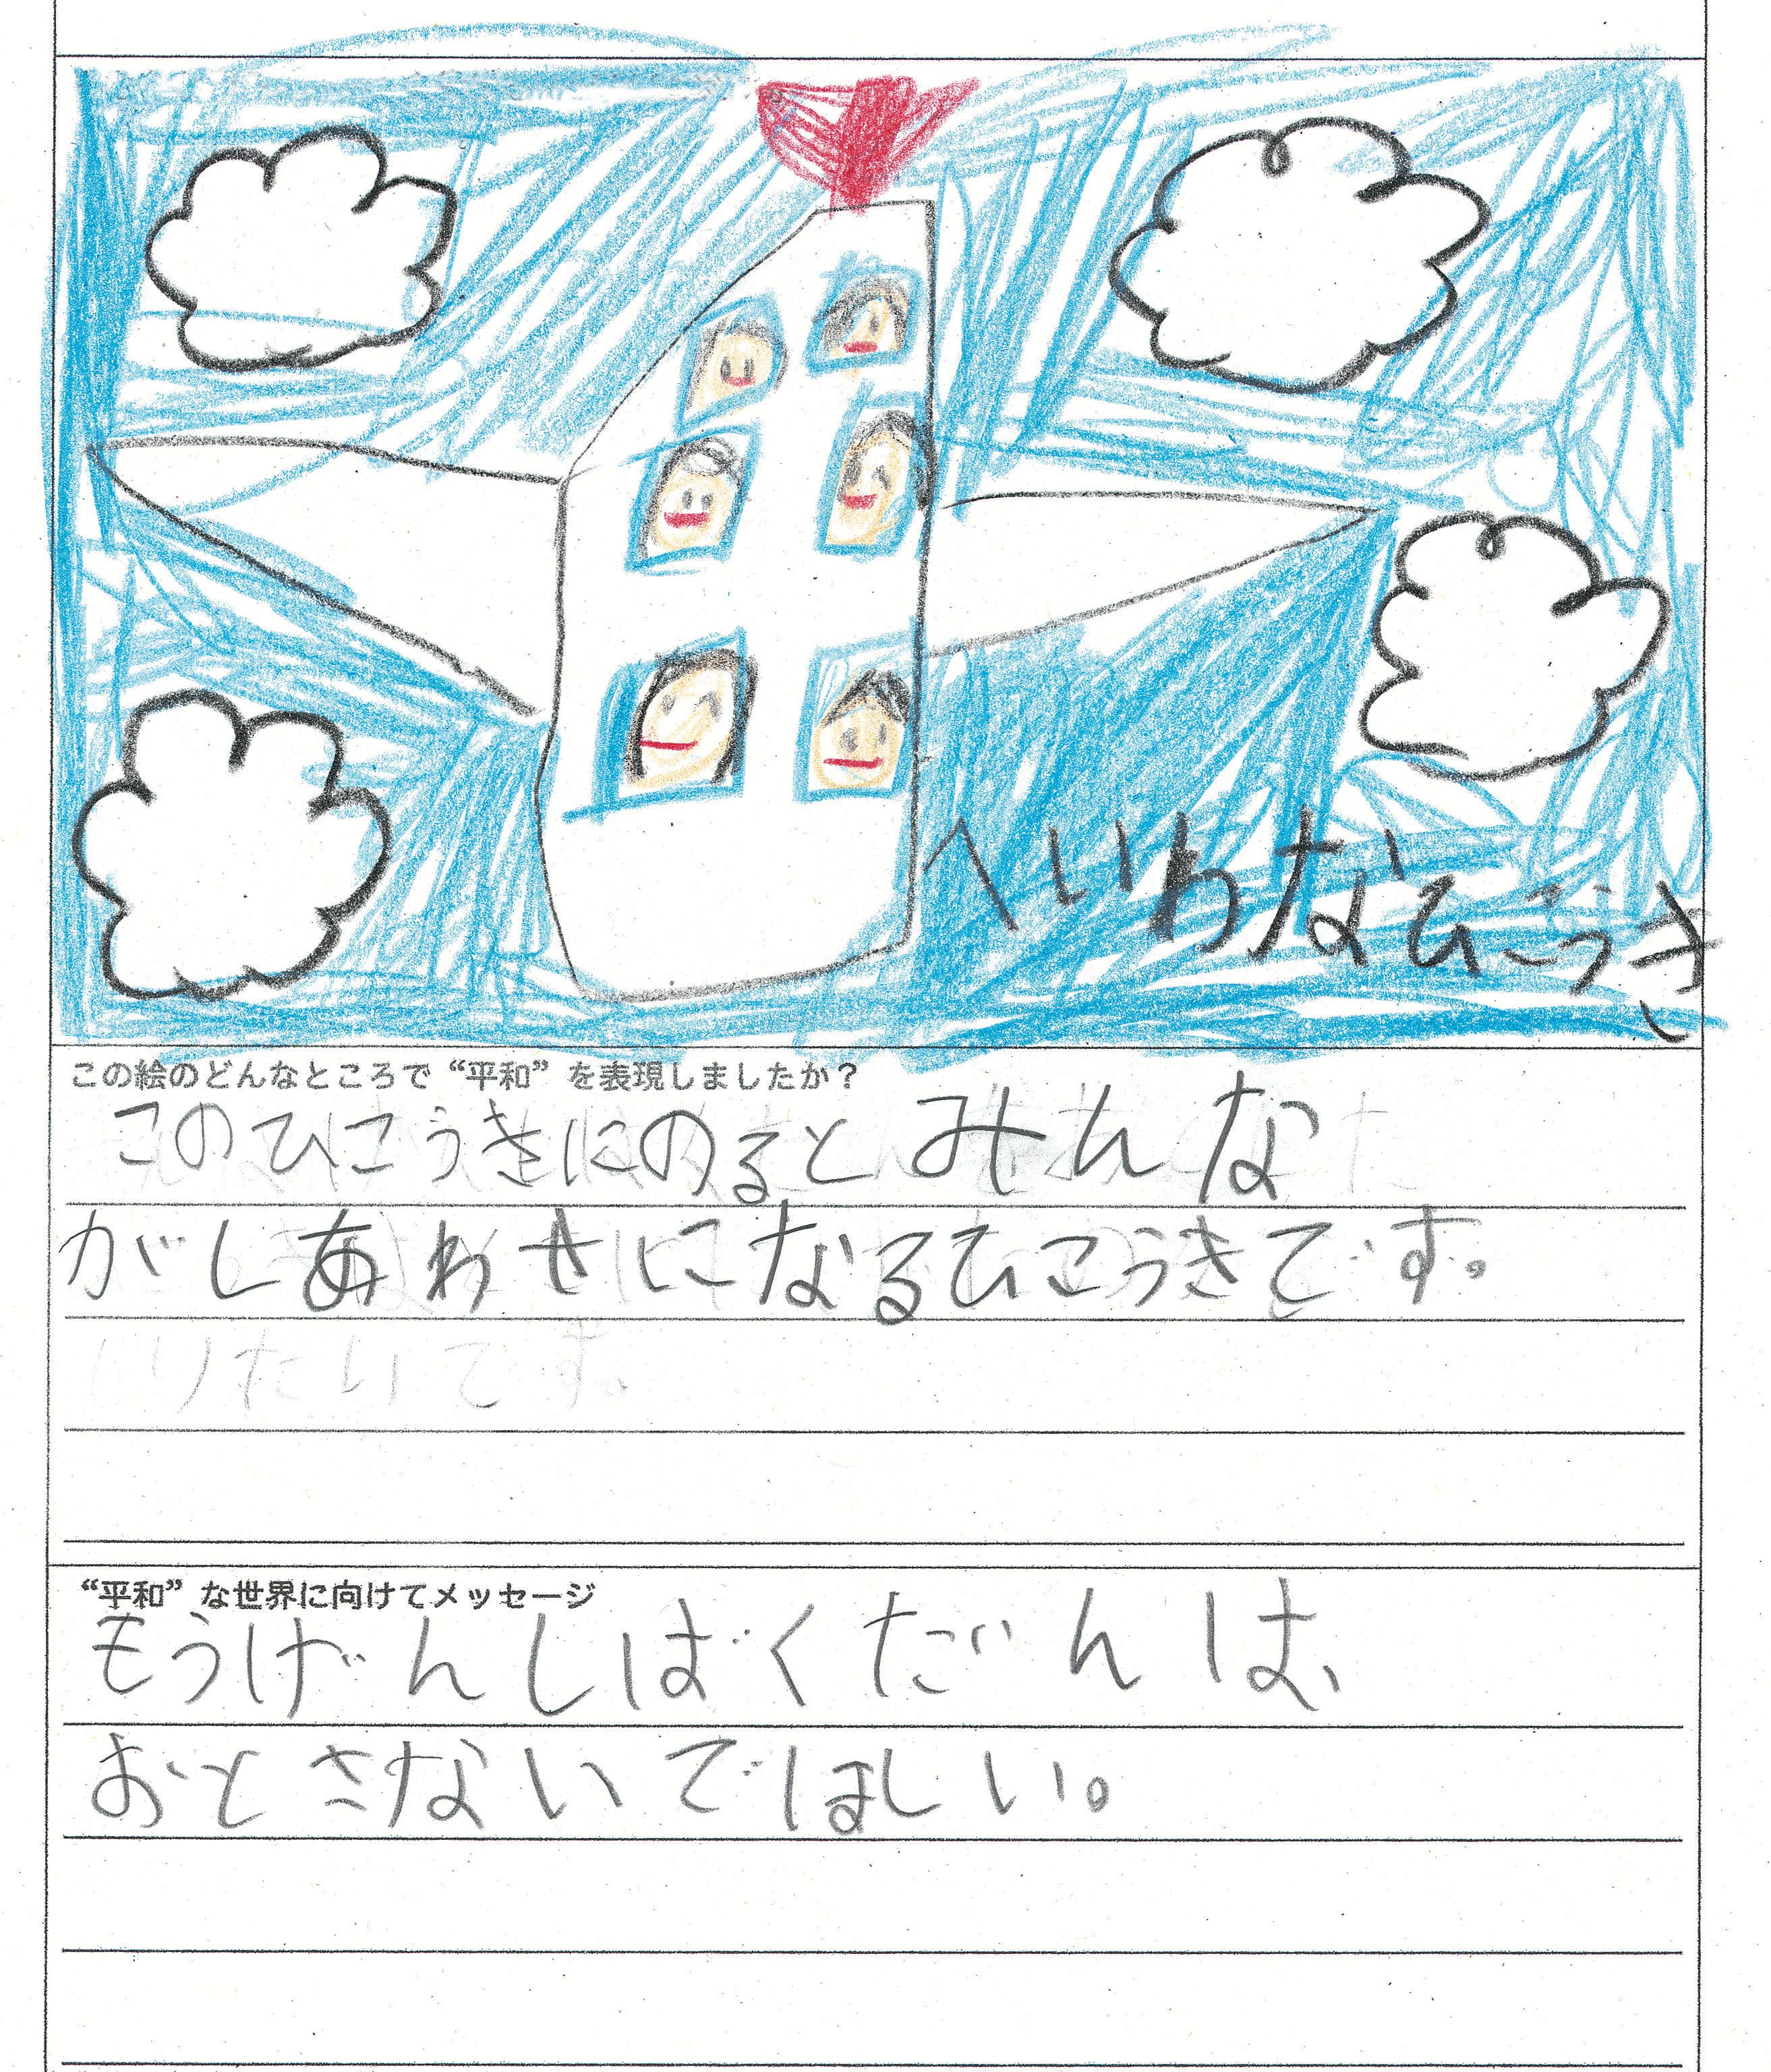 へいわなひこうき
この絵のどんなところで“平和”を表現しましたか？
このひこうきにのるとみんな
がしあわせになるひこうきです。
しりたいです。
“平和”な世界に向けてメッセージ
もうげんしばくだんは、
おとさないでほしい。